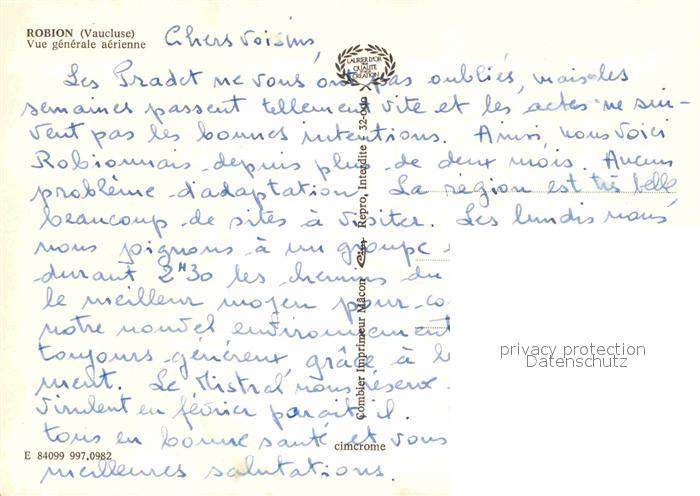 ROBION (Vaucluse)
Vue générale aérienne
Chers Voisins,
LAURIER D'OR
DE LA
QUALITÉ
CRÉATION
Les Pradet ne vous ont pas oubliés, mais les
semaines passent tellement vite et les actes ne sui-
vent pas les bonnes intentions. Ainsi, nous voici
Robionnais depuis plus de deux mois. Aucun
problème d'adaptation. La région est très belle
beaucoup de sites à visiter. Les lundis nous
nous joignons à un groupe
durant 2H30 les chemins du
le meilleur moyen pour co
notre nouvel environnement
toujours généreux, grâce à l
ment. Le Mistral nous réserve
virulent en février paraît il.
tous en bonne santé et vous
meilleures salutations.
Combier Imprimeur Mâcon Repro. Interdite 32-010
privacy protection
Datenschutz
cimcrome
E 84099 997.0982